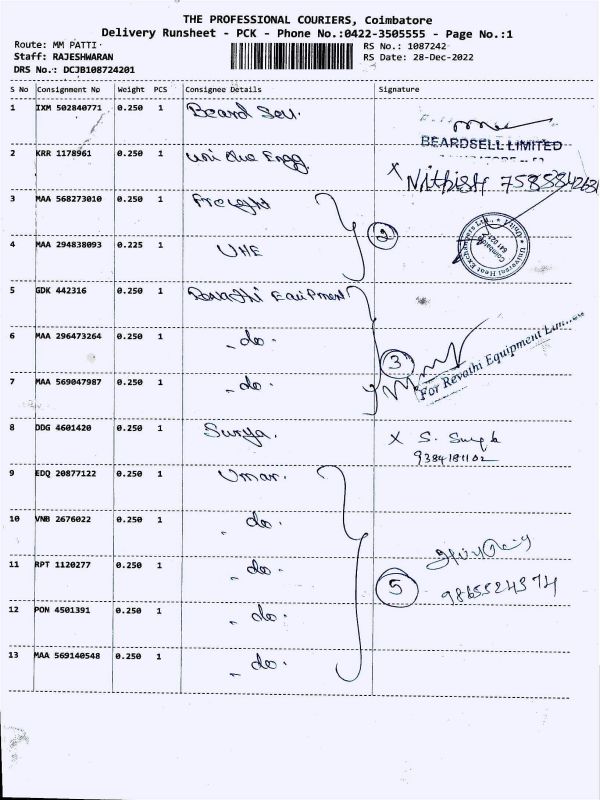 THE PROFESSIONAL COURIERS, Coimbatore
Delivery Runsheet - PCK - Phone No.:0422-3505555 - Page No.:1
Route: MM PATTI
Staff: RAJESHWARAN
DRS No.: DCJB108724201
RS No.: 1087242
RS Date: 28-Dec-2022
S No Consignment No Weight PCS Consignee Details Signature
1 IXM 502840771 0.250 1 Beard Sell.
BEARDSELL LIMITED
2 KRR 1178961 0.250 1 Uni Que Engg
X Nithish
3 MAA 568273010 0.250 1 Freight
2
4 MAA 294838093 0.225 1 UHE
Universal Heat Exchangers Ltd.,
Coimbatore
641 021
5 GDK 442316 0.250 1 Revathi Equipment
6 MAA 296473264 0.250 1 - do -
3
For Revathi Equipment Limited
7 MAA 569047987 0.250 1 - do -
8 DDG 4601420 0.250 1 Surya.
X S.
9384181102
9 EDQ 20877122 0.250 1 Umar.
10 VNB 2676022 0.250 1 - do -
11 RPT 1120277 0.250 1 - do -
5
9865524574
12 PON 4501391 0.250 1 - do -
13 MAA 569140548 0.250 1 - do -